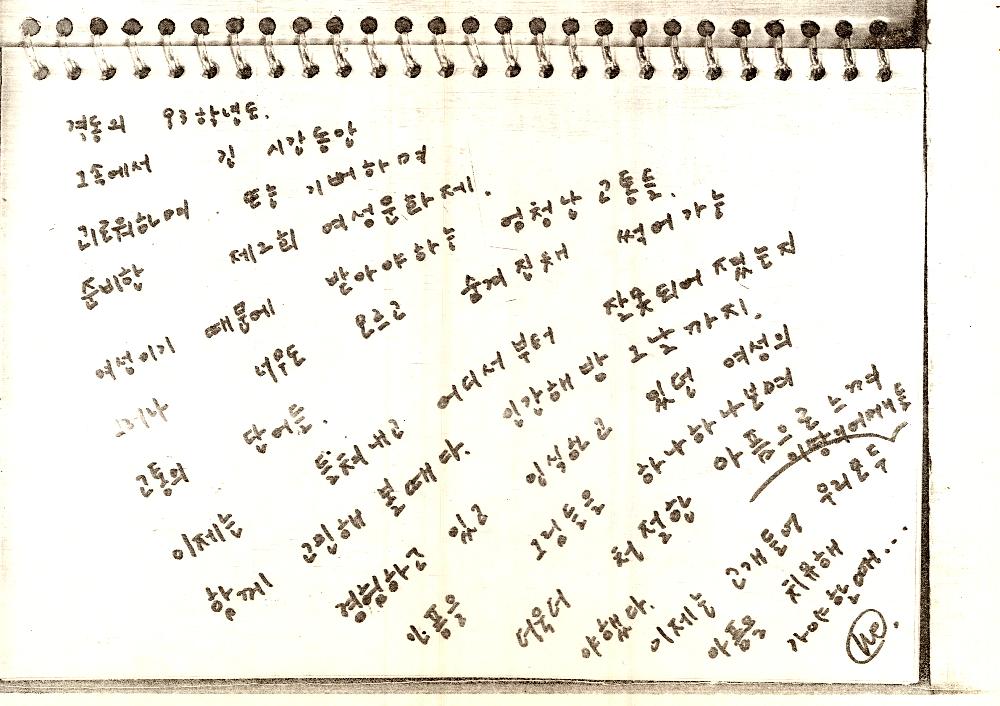 격동의 93학년도.
그속에서 긴 시간동안
괴로워하며 또는 기뻐하며
준비한 제2회 여성문화제.
여성이기 때문에 받아야하는 엄청난 고통들.
그러나 너무도 모르고 숨겨진채 썩어가는
고통의 단어들.
이제는 들춰내고 어디서부터 잘못되어졌는지
함께 고민해 볼때다. 인간해방 그날까지.
경험하고 있고 인식하고 있던 여성의
아픔을 그림들을 하나하나보며
더욱더 처절한 아픔으로 느껴
야했다.
이제는 고개들어 우리모두
아픔을 치유해
가야할때...